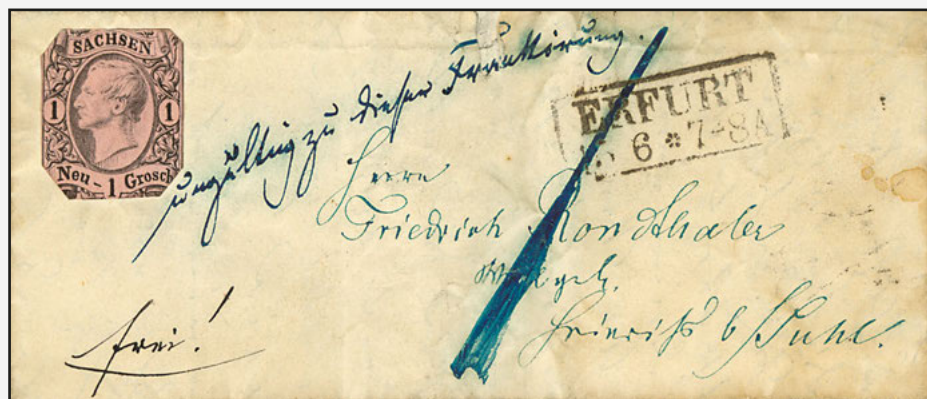 SACHSEN
1 1
Neu - 1 Grosch
ungültig zu dieser Frankirung.
ERFURT
6 * 7-8A
Herrn
Friedrich Rondthaler
Heinrichs b/Suhl.
frei!